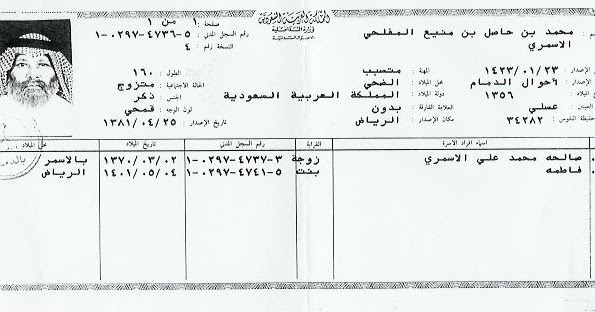 المملكة العربية السعودية
وزارة الداخلية
صفحة ١ من ١
رقم السجل المدني ١-٠٢٩٧-٤٧٣٦-٥
النسخة رقم ٤
محمد بن حاصل بن منيع المفلحي الاسمري
الإصدار ١٤٢٣/٠١/٢٣ المهنة متسبب الطول ١٦٠
الإصدار احوال الدمام محل الميلاد الضحي الحالة الاجتماعية متزوج
الميلاد ١٣٥٦ دولة الميلاد المملكة العربية السعودية الجنس ذكر
العينين عسلي العلامة الفارقة بدون لون الوجه قمحي
حفيظة النفوس ٣٤٢٨٢ مكان الإصدار الرياض تاريخ الإصدار ١٣٨١/٠٤/٢٥
اسماء افراد الاسرة القرابة رقم السجل المدني تاريخ الميلاد محل الميلاد
صالحه محمد علي الاسمري زوجة ١-٠٢٩٧-٤٧٣٧-٣ ١٣٧٠/٠٣/٠٢ بالاسمر
فاطمه بنت ١-٠٢٩٧-٤٧٤١-٥ ١٤٠١/٠٥/٠٤ الرياض